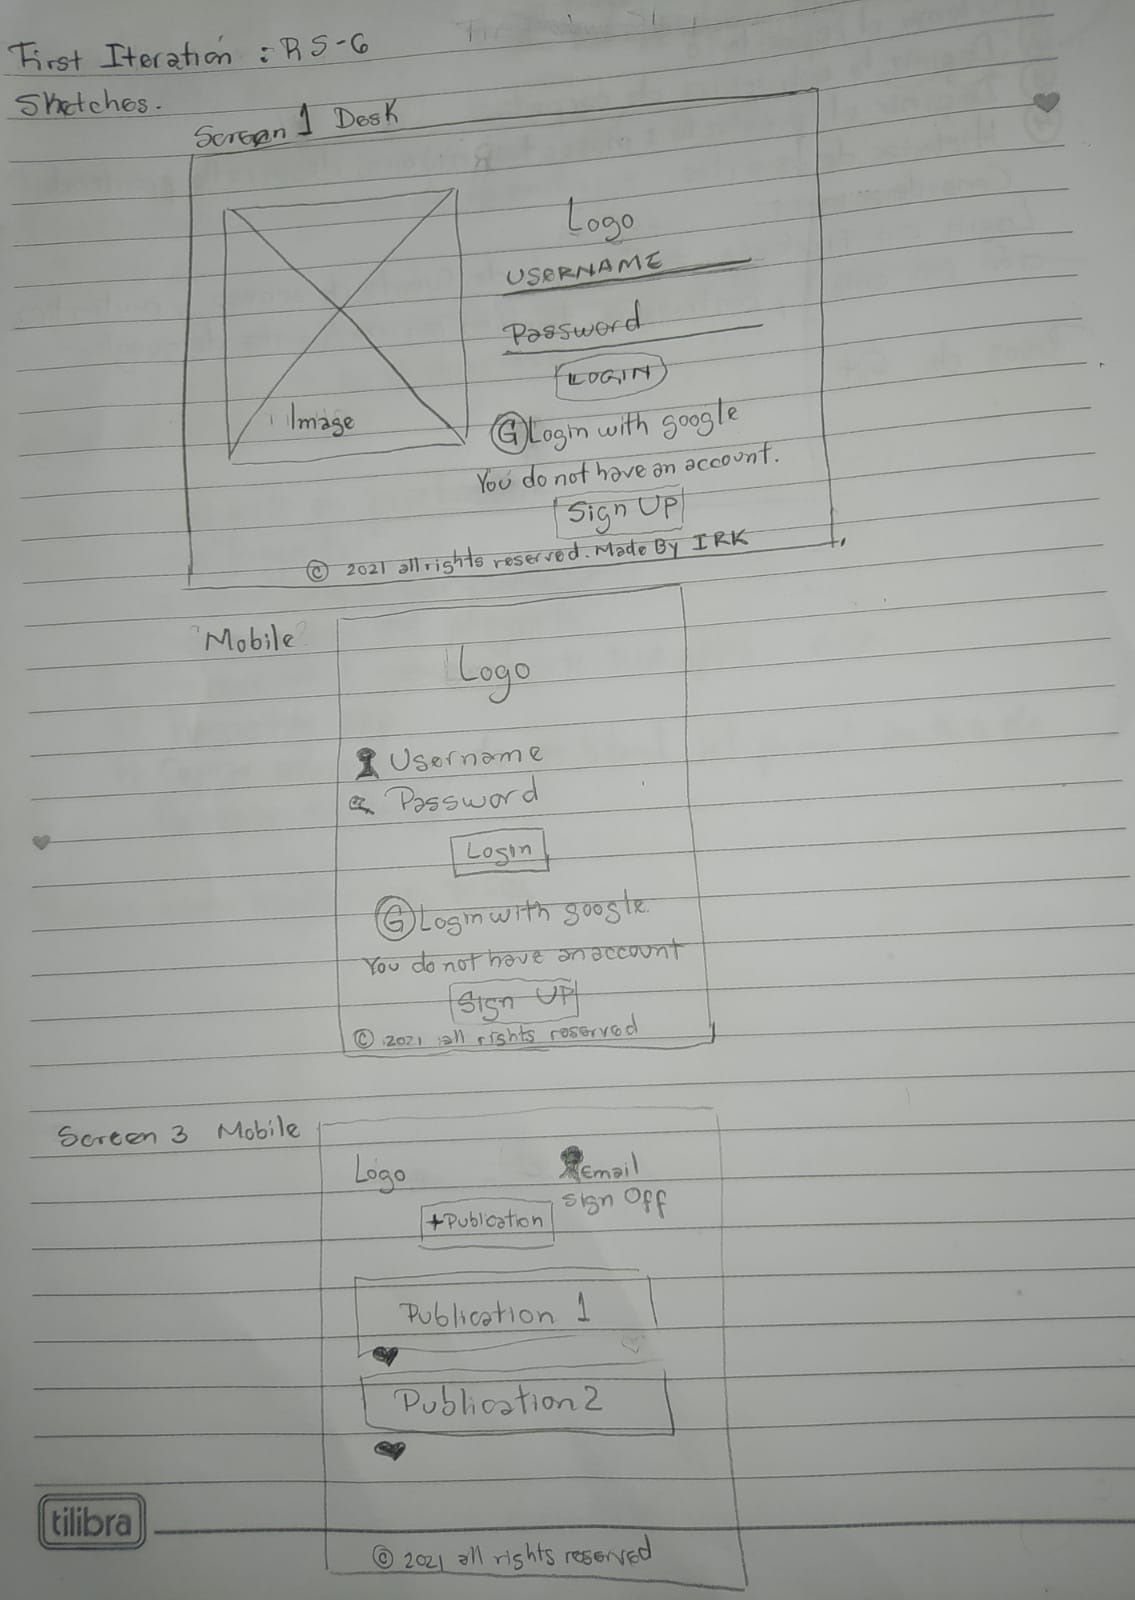 First Iteration : RS-6
Sketches.
Screen 1 Desk
Logo
USERNAME
Password
LOGIN
Image
G Login with google
You do not have an account.
Sign UP
© 2021 all rights reserved. Made By IRK
"Mobile"
Logo
Username
Password
Login
G Login with google.
You do not have an account
Sign UP
© 2021 all rights reserved
Screen 3 Mobile
Logo
Email
Sign Off
+Publication
Publication 1
Publication 2
tilibra
© 2021 all rights reserved